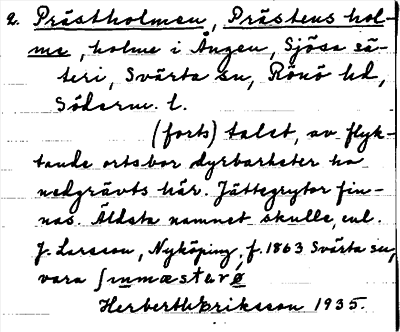 2. Prästholmen, Prästens hol-
me, holme i Ången, Sjösa sä-
teri, Svärta sn, Rönö hd,
Söderm. l.
(forts) talet, av flyk-
tande ortsbor dyrbarheter ha
nedgrävts här. Jättegrytor fin-
nas. Äldsta namnet skulle, enl.
J. Larsson, Nyköping, f. 1863 Svärta sn,
vara ſmmæstarø
Herberth Eriksson 1935.